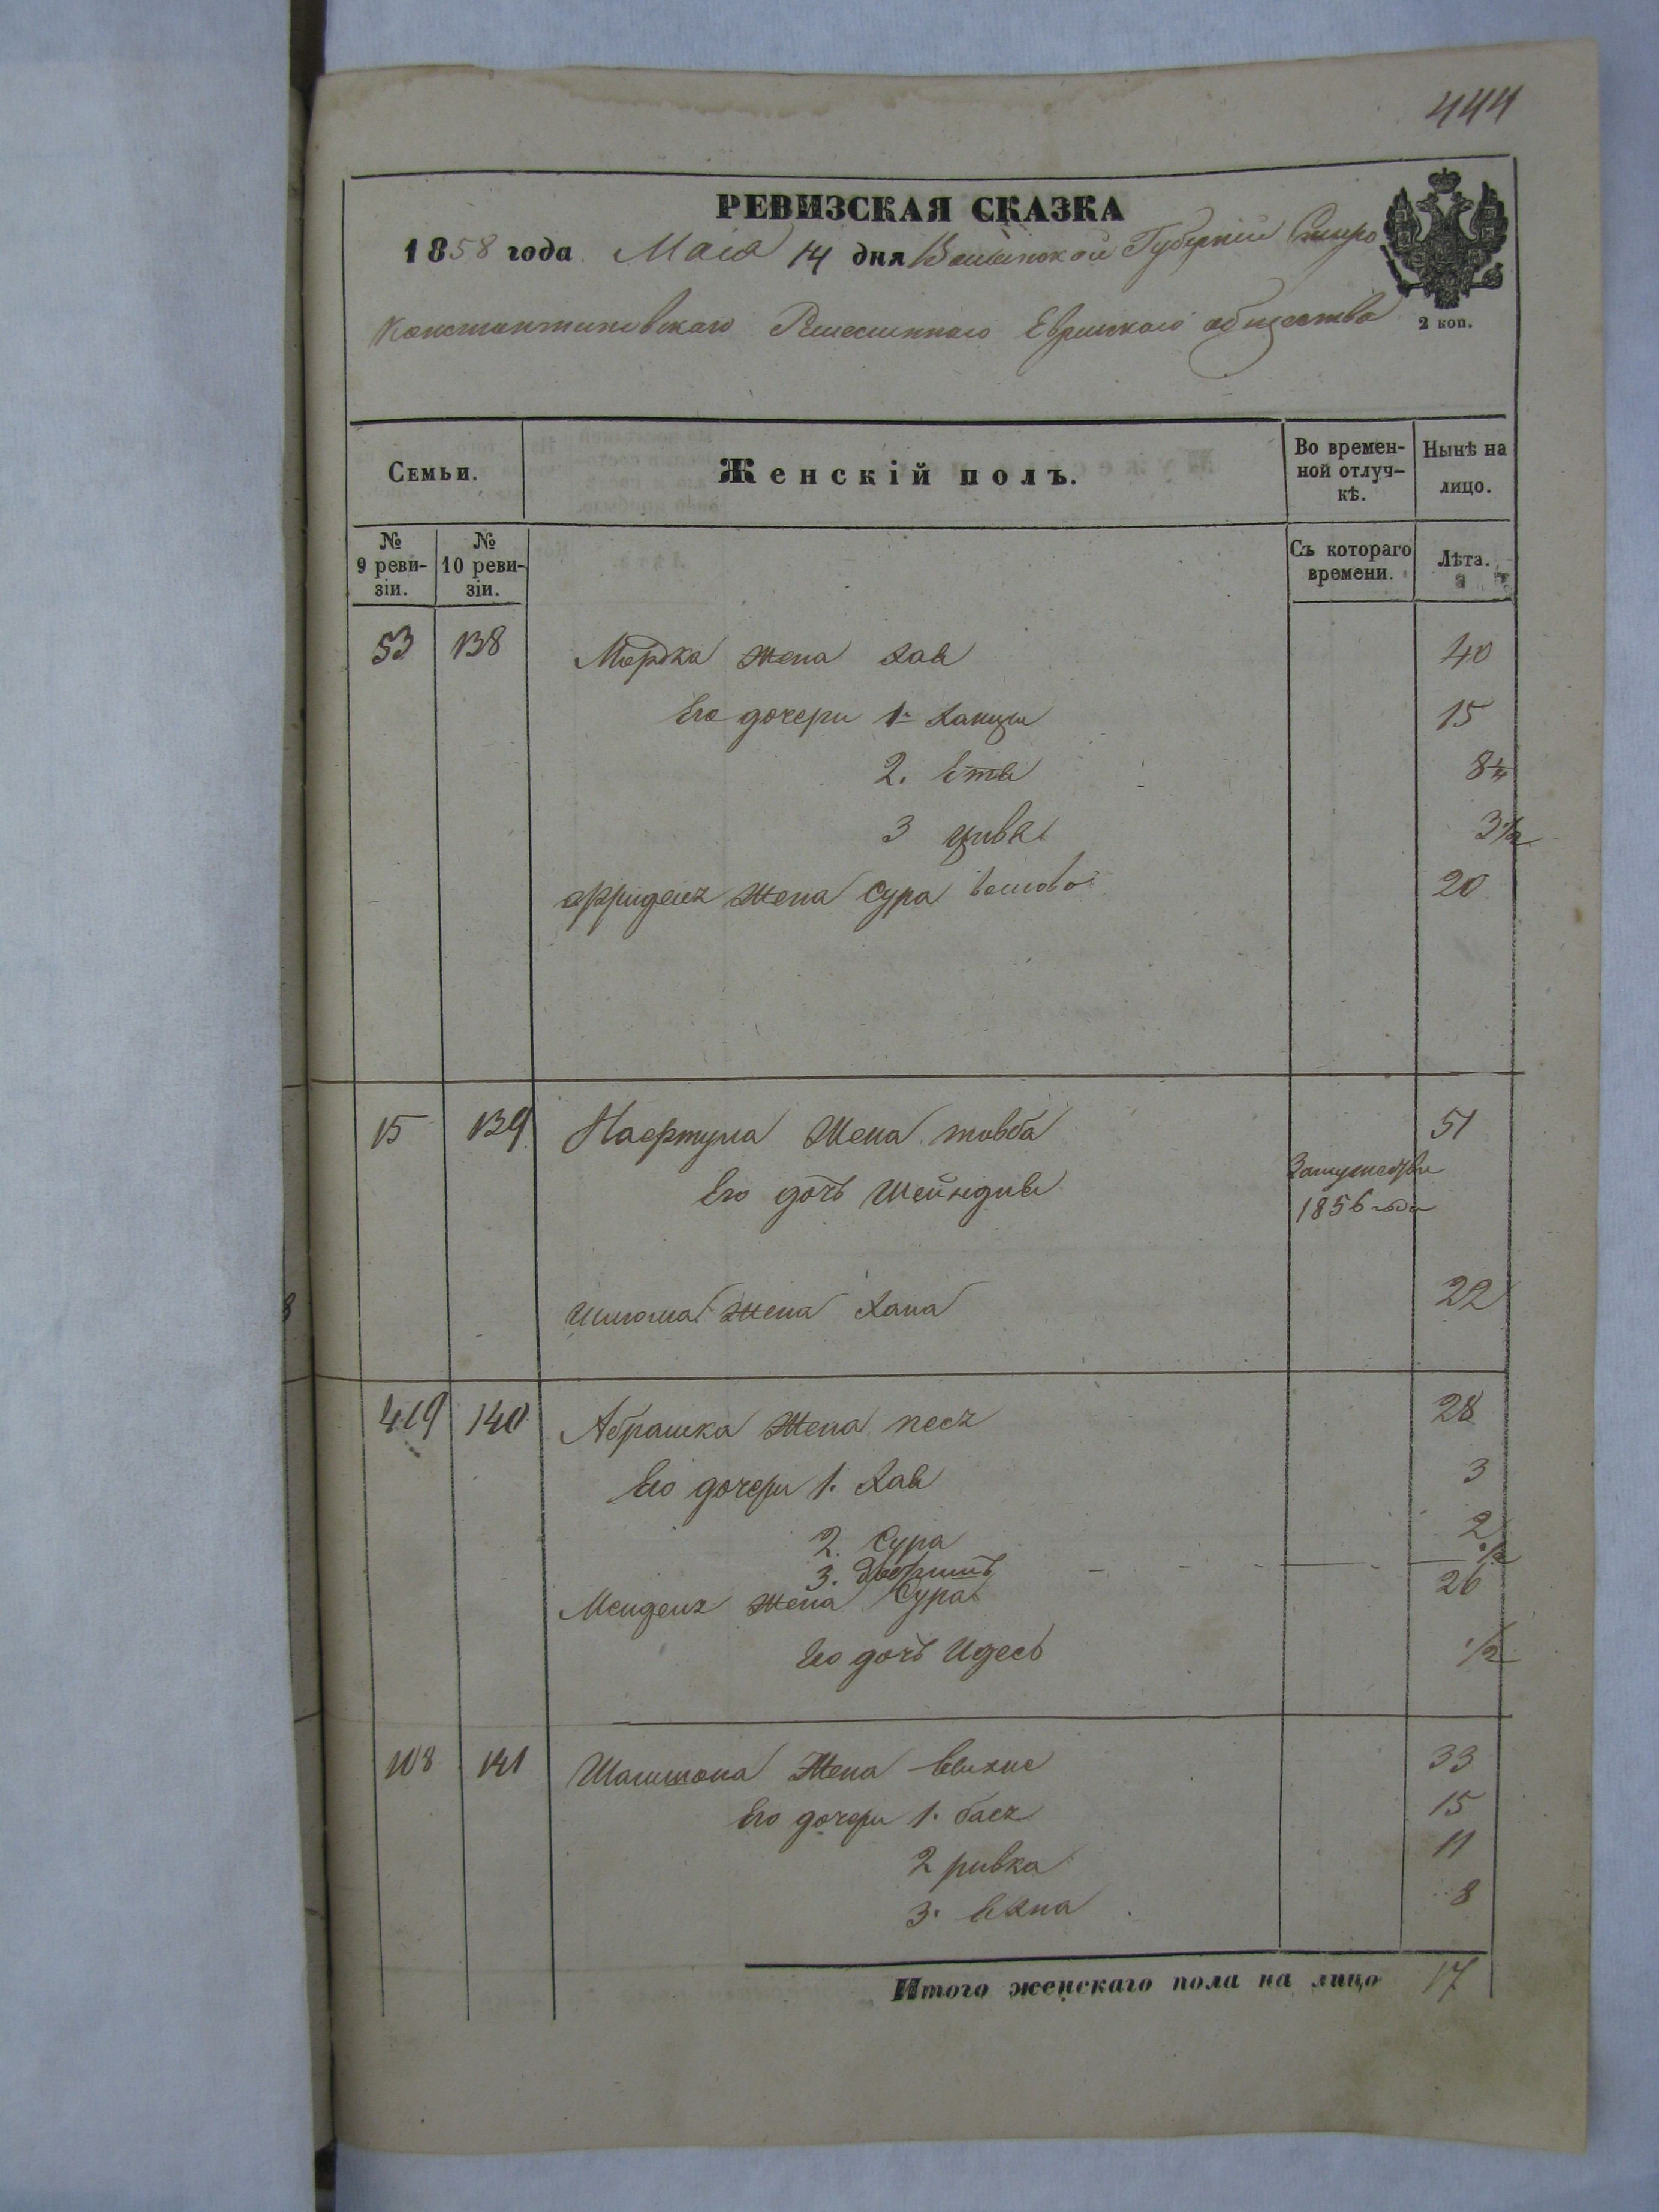 444
РЕВИЗСКАЯ СКАЗКА
1858 года Маія 14 дня Волынской Губерніи Старо
Константиновскаго Ремесленнаго Еврейскаго общества
2 коп.
Семьи. Женскій полъ. Во времен-ной отлуч-кѣ. Нынѣ на лицо.
№ 9 реви-зіи. № 10 реви-зіи. Съ котораго времени. Лѣта.
53 138 Мордка жена Хая 40
Его дочери 1. Ханця 15
2. Етя 8
3 цивя 3 1/2
Фриделя жена Сура 20
15 139 Нафтула Жена товба 51
Его дочь Шейндля Замужестве
1856 года
Шлома жена Хана 22
419 140 Абрашка жена песя 28
Его дочери 1. Хая 3
2. Сура 2
3. 1/2
Менделя жена Сура 26
Его дочь Идесь 1/2
108 141 Шамшона Жена 33
Его дочери 1. бася 15
2 ривка 11
3. 8
Итого женскаго пола на лицо 17